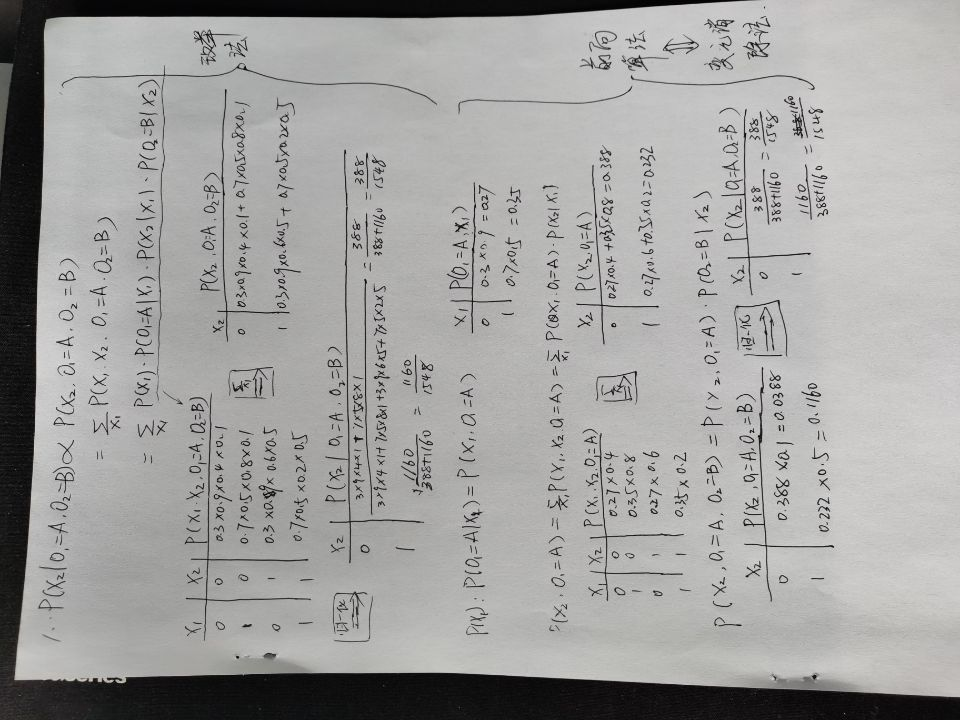 1. P(X₂|O₁=A, O₂=B) ∝ P(X₂, O₁=A, O₂=B)
= Σ_{X₁} P(X₁, X₂, O₁=A, O₂=B)
= Σ_{X₁} P(X₁)·P(O₁=A|X₁)·P(X₂|X₁)·P(O₂=B|X₂)
X₁ | X₂ | P(X₁, X₂, O₁=A, O₂=B)
0 | 0 | 0.3×0.9×0.4×0.1
1 | 0 | 0.7×0.5×0.8×0.1
0 | 1 | 0.3×0.9×0.6×0.5
1 | 1 | 0.7×0.5×0.2×0.5
Σ_{X₁} ⇒
X₂ | P(X₂, O₁=A, O₂=B)
0 | 0.3×0.9×0.4×0.1+0.7×0.5×0.8×0.1
1 | 0.3×0.9×0.6×0.5+0.7×0.5×0.2×0.5
枚举
法
归一化 ⇒
X₂ | P(X₂|O₁=A, O₂=B)
0 | (3×9×4×1+7×5×8×1)/(3×9×4×1+7×5×8×1+3×9×6×5+7×5×2×5) = 388/(388+1160) = 388/1548
1 | 1160/(388+1160) = 1160/1548
P(X₁): P(O₁=A|X₁) = P(X₁, O₁=A)
X₁ | P(O₁=A, X₁)
0 | 0.3×0.9=0.27
1 | 0.7×0.5=0.35
P(X₂, O₁=A) = Σ_{X₁} P(X₁, X₂, O₁=A) = Σ_{X₁} P(X₁, O₁=A)·P(X₂|X₁)
X₁ | X₂ | P(X₁, X₂, O₁=A)
0 | 0 | 0.27×0.4
1 | 0 | 0.35×0.8
0 | 1 | 0.27×0.6
1 | 1 | 0.35×0.2
Σ_{X₁} ⇒
X₂ | P(X₂, O₁=A)
0 | 0.27×0.4+0.35×0.8=0.388
1 | 0.27×0.6+0.35×0.2=0.232
前向
算法
⇕
变元消
除法.
P(X₂, O₁=A, O₂=B) = P(X₂, O₁=A)·P(O₂=B|X₂)
X₂ | P(X₂, O₁=A, O₂=B)
0 | 0.388×0.1=0.0388
1 | 0.232×0.5=0.1160
归一化 ⇒
X₂ | P(X₂|O₁=A, O₂=B)
0 | 388/(388+1160) = 388/1548
1 | 1160/(388+1160) = 1160/1548